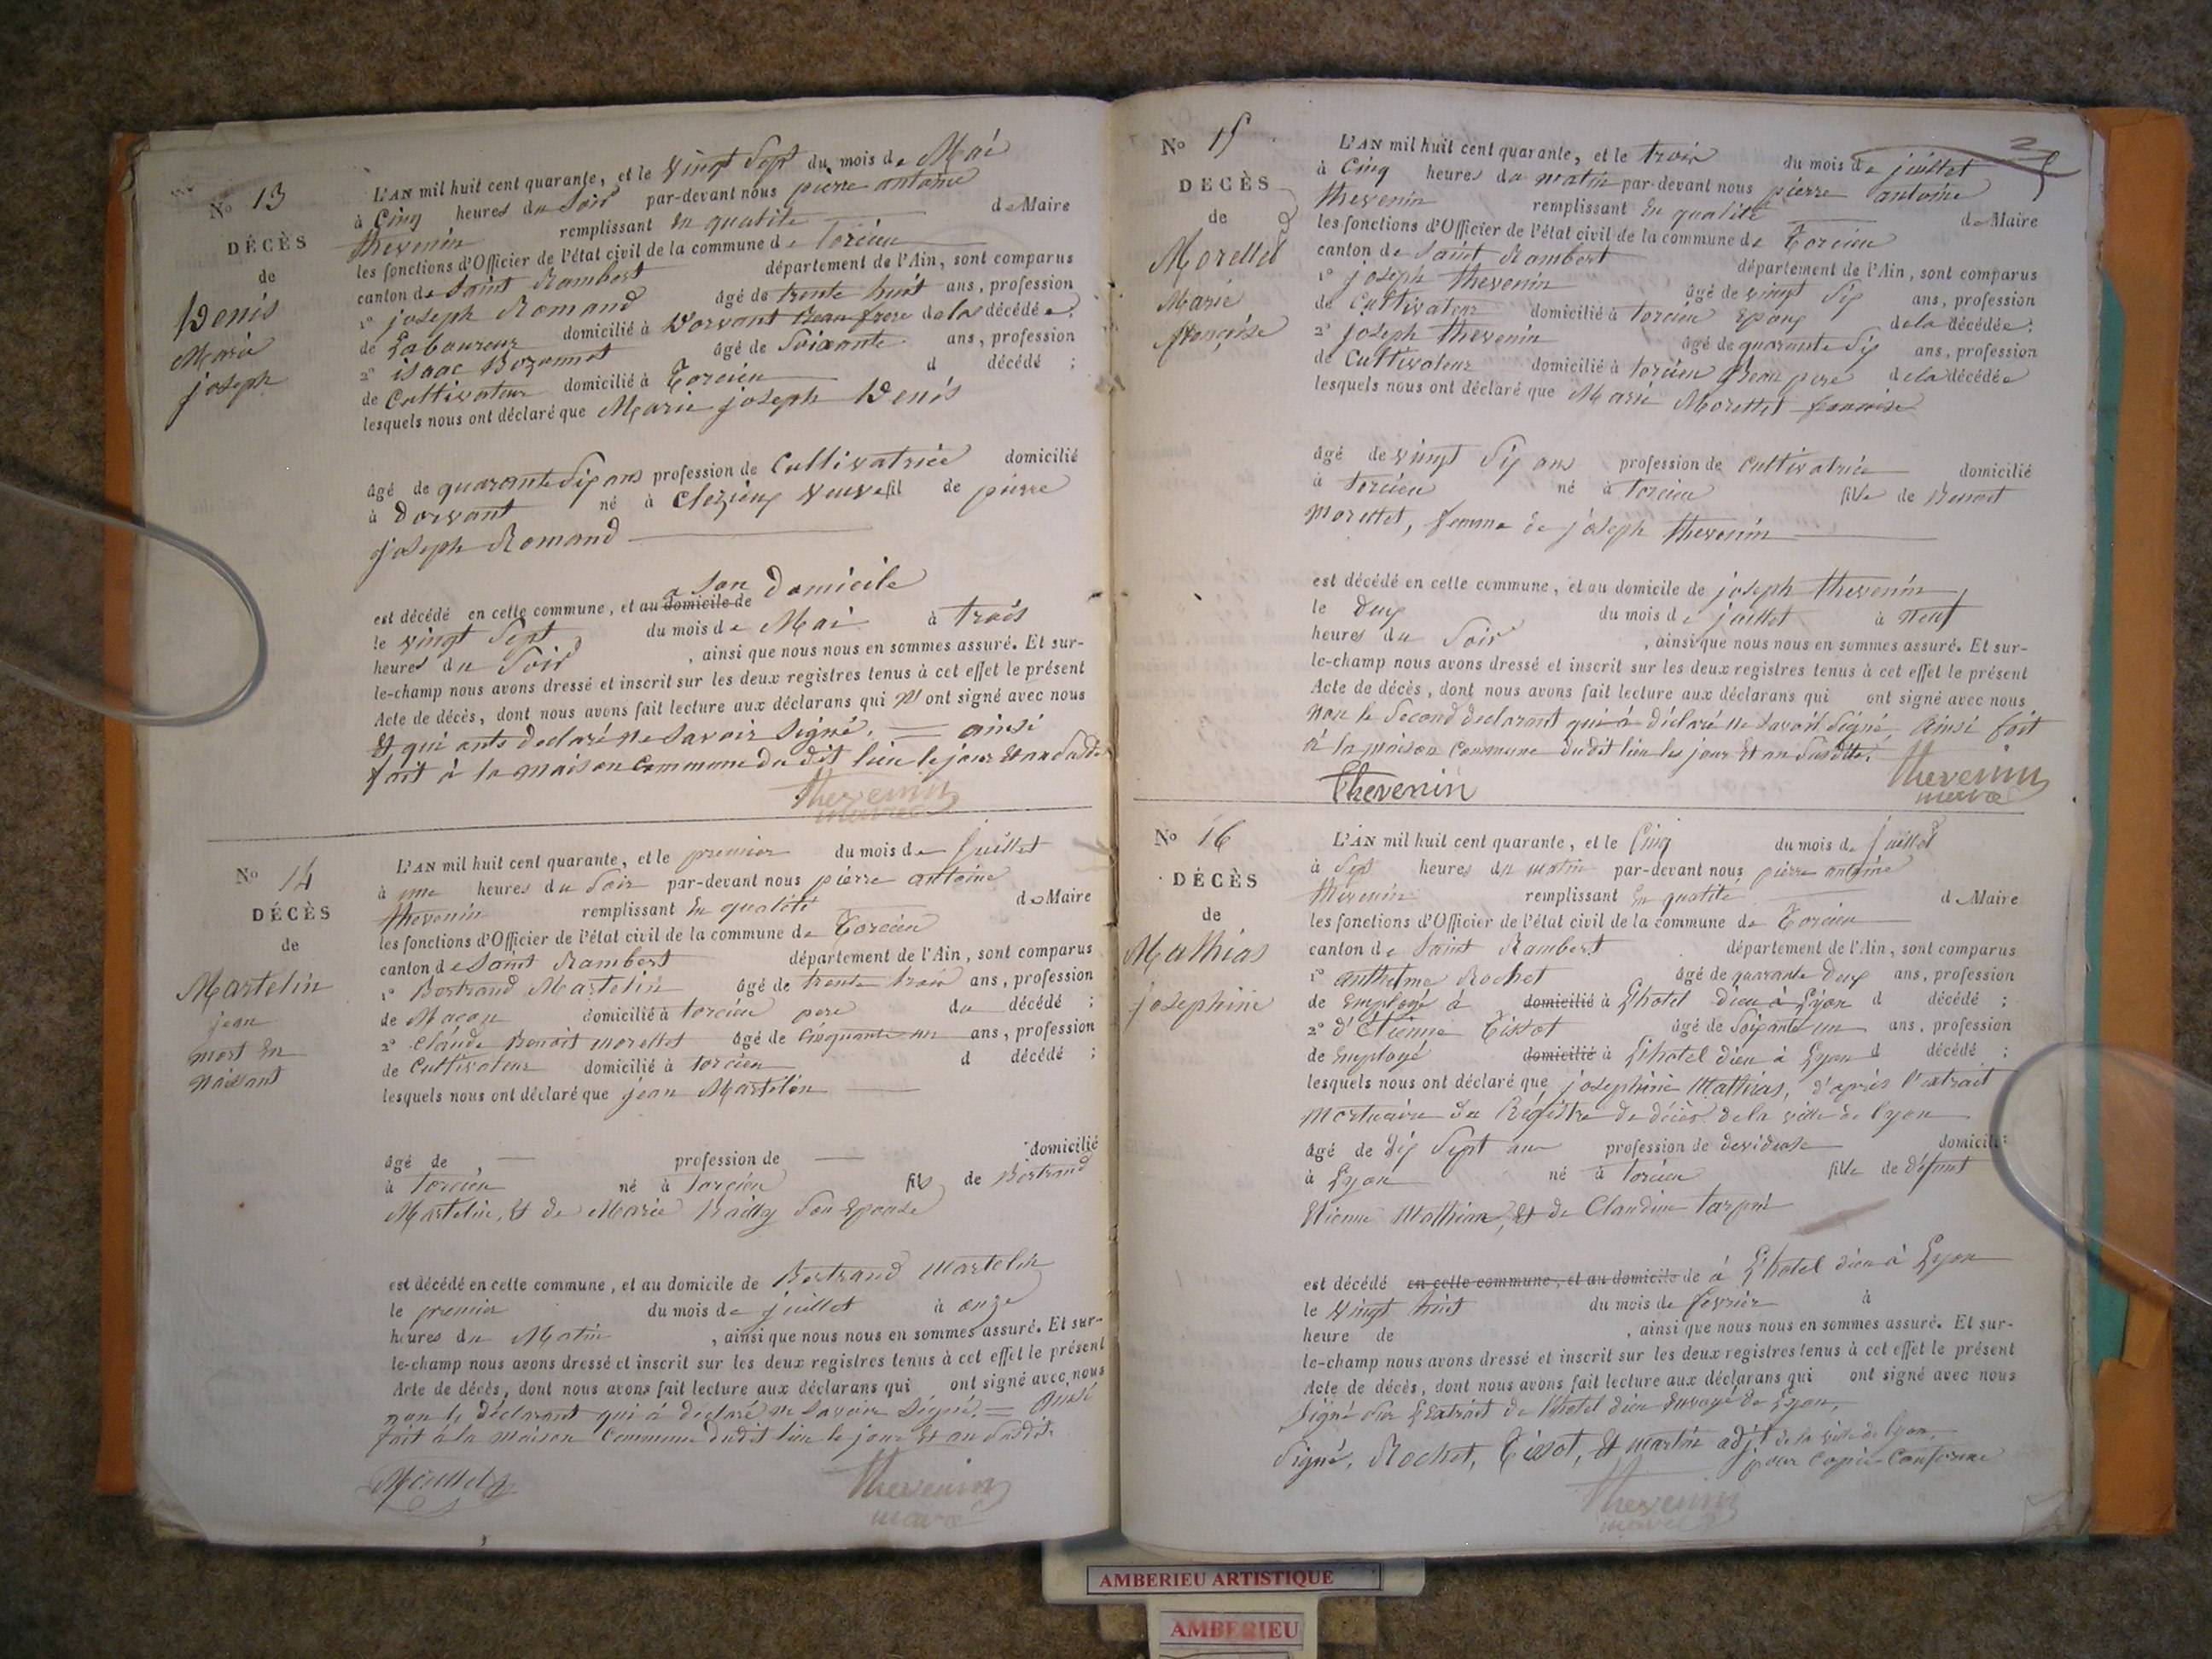 No 13
DÉCÈS
de
Denis
Marie
joseph
L'AN mil huit cent quarante, et le vingt Sept du mois de Mai
à Cinq heures du Soir par-devant nous pierre antoine
thevenin remplissant En qualité de Maire
les fonctions d'Officier de l'état civil de la commune de Torcieu
canton de Saint Rambert département de l'Ain, sont comparus
1° joseph Romand âgé de trente huit ans, profession
de Laboureur domicilié à Dorvant Beau frere de la décédée;
2° isaac Bozonnet âgé de Soixante ans, profession
de Cultivateur domicilié à Torcieu d décédé ;
lesquels nous ont déclaré que Marie joseph Denis
âgé de quarante Six ans profession de Cultivatrice domicilié
à Dorvant né à Clezieux veuve fil de pierre
joseph Romand
est décédé en cette commune, et au domicile de a son Domicile
le vingt Sept du mois de Mai à trois
heures du Soir, ainsi que nous nous en sommes assuré. Et sur-
le-champ nous avons dressé et inscrit sur les deux registres tenus à cet effet le présent
Acte de décès, dont nous avons fait lecture aux déclarans qui n'ont signé avec nous
Et qui onts declaré ne Savoir Signé. = ainsi
fait à la maison Commune du dit lieu le jour Et an Susdit
Thevenin
maire
No 14
DÉCÈS
de
Martelin
jean
mort En
naissant
L'AN mil huit cent quarante, et le premier du mois de Juillet
à une heures du Soir par-devant nous pierre antoine
thevenin remplissant En qualité de Maire
les fonctions d'Officier de l'état civil de la commune de Torcieu
canton de Saint Rambert département de l'Ain, sont comparus
1° Bertrand Martelin âgé de trente trois ans, profession
de Maçon domicilié à torcieu pere du décédé ;
2° Claude Benoit morettet âgé de Cinquante un ans, profession
de Cultivateur domicilié à torcieu d décédé ;
lesquels nous ont déclaré que jean Martelin
âgé de, — profession de — domicilié
à torcieu né à torcieu fils de Bertrand
Martelin, Et de Marie Son Epouse
est décédé en cette commune, et au domicile de Bertrand Martelin
le premier du mois de juillet à onze
heures du Matin, ainsi que nous nous en sommes assuré. Et sur-
le-champ nous avons dressé et inscrit sur les deux registres tenus à cet effet le présent
Acte de décès, dont nous avons fait lecture aux déclarans qui ont signé avec nous
non le déclarant qui à declaré ne Savoir Signé. = ainsi
fait à la maison Commune dudit lieu le jour Et an Susdit.
Thevenin
maire
No 15
DÉCÈS
de
Morettet
Marie
françoise
L'AN mil huit cent quarante, et le trois du mois de juillet
à Cinq heures du matin par-devant nous pierre antoine
thevenin remplissant En qualité de Maire
les fonctions d'Officier de l'état civil de la commune de Torcieu
canton de Saint Rambert département de l'Ain, sont comparus
1° joseph thevenin âgé de vingt Six ans, profession
de Cultivateur domicilié à torcieu Epoux de la décédée;
2° joseph thevenin âgé de quarante Six ans, profession
de Cultivateur domicilié à torcieu Beau pere de la décédée
lesquels nous ont déclaré que Marie Morettet francoise
âgé de vingt Six ans profession de cultivatrice domicilié
à torcieu né à torcieu fille de Benoit
Morettet, femme de joseph thevenin
est décédé en cette commune, et au domicile de joseph thevenin,
le Deux du mois de juillet à neuf
heures du Soir, ainsi que nous nous en sommes assuré. Et sur-
le-champ nous avons dressé et inscrit sur les deux registres tenus à cet effet le présent
Acte de décès, dont nous avons fait lecture aux déclarans qui ont signé avec nous
non le Second declarant qui à déclaré ne Savoir Signé, ainsi fait
à la maison commune du dit lieu les jour Et an Susdits.
Thevenin
Thevenin
maire
No 16
DÉCÈS
de
Mathias
josephine
L'AN mil huit cent quarante, et le Cinq du mois de Juillet
à Sept heures du matin par-devant nous pierre antoine
thevenin remplissant En qualité de Maire
les fonctions d'Officier de l'état civil de la commune de Torcieu
canton de Saint Rambert département de l'Ain, sont comparus
1° anthelme Rochet âgé de quarante Deux ans, profession
de Employé à domicilié à L'hotel Dieu à Lyon d décédé ;
2° d'Étienne Tissot âgé de Soixante un ans, profession
de Employé domicilié à L'hotel dieu à Lyon d décédé ;
lesquels nous ont déclaré que josephine Mathias, d'après l'extrait
mortuaire du Régistre de décès de la ville de Lyon
âgé de dix Sept ans profession de devideuse domicilié
à Lyon né à torcieu fille de défunt
Etienne Mathias, Et de Claudine
est décédé en cette commune, et au domicile de à L'hotel dieu à Lyon
le vingt huit du mois de fevrier à
heure de, ainsi que nous nous en sommes assuré. Et sur-
le-champ nous avons dressé et inscrit sur les deux registres tenus à cet effet le présent
Acte de décès, dont nous avons fait lecture aux déclarans qui ont signé avec nous
Signé Sur L'Extrait de l'hotel dieu Envoyé de Lyon,
Signé, Rochet, Tissot, Et Martin adjt de la ville de Lyon.
pour Copie Conforme
Thevenin
maire
AMBERIEU ARTISTIQUE
AMBERIEU